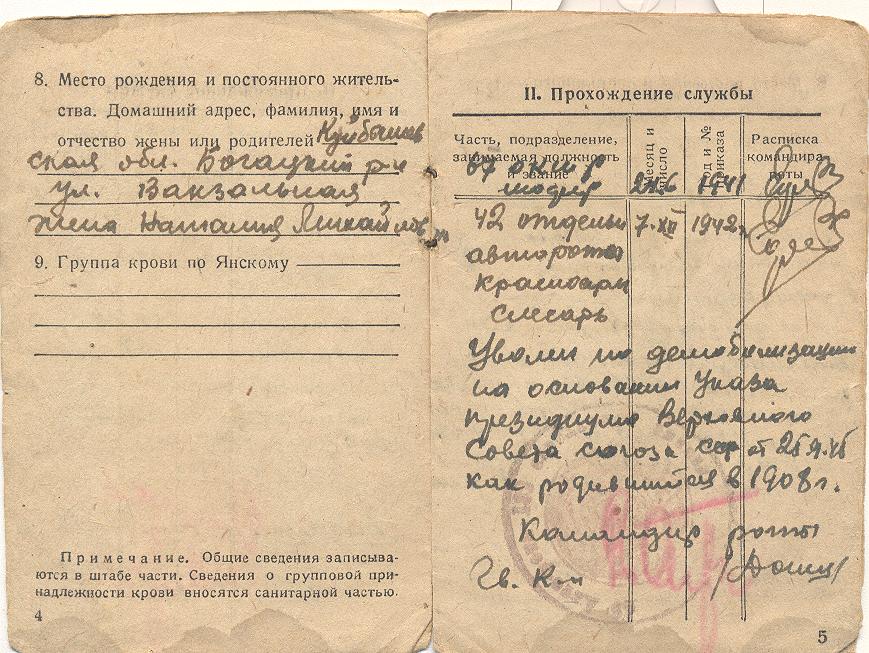 8. Место рождения и постоянного житель-
ства. Домашний адрес, фамилия, имя и
отчество жены или родителей Куйбышев
ская обл. Богацкий р-н
ул. Вакзальная
жена Наталия Михайлов
9. Группа крови по Янскому
Примечание. Общие сведения записыва-
ются в штабе части. Сведения о групповой при-
надлежности крови вносятся санитарной частью.
4
II. Прохождение службы
Часть, подразделение, занимаемая должность и звание
месяц и число
год и № приказа
Расписка командира роты
67 1941
42 отдельн 7.XII 1942г.
авторота
красноарм
слесарь
Уволен по демобилизации
на основании Указа
президиума Верховного
Совета союза сср от 25
как родившийся в 1908 г.
Командир роты
Гв. К-н
5